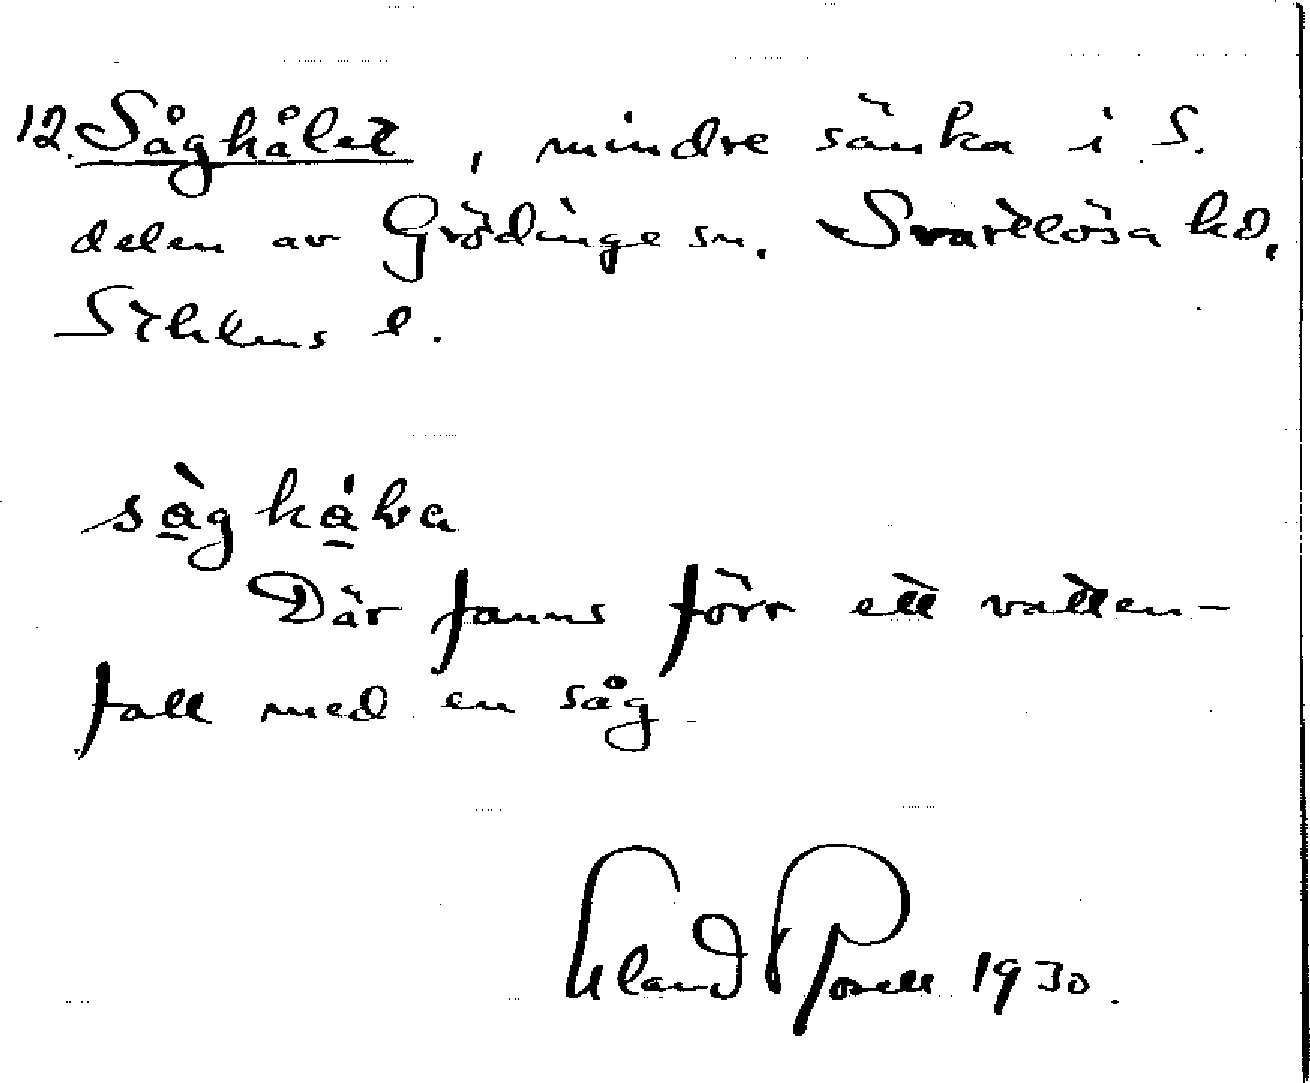 12. Såghålet, mindre sänka i S.
delen av Grödinge sn. Svartlösa hd.
Sthlms l.
Där fanns förr ett vatten-
fall med en såg
Eland 1930.